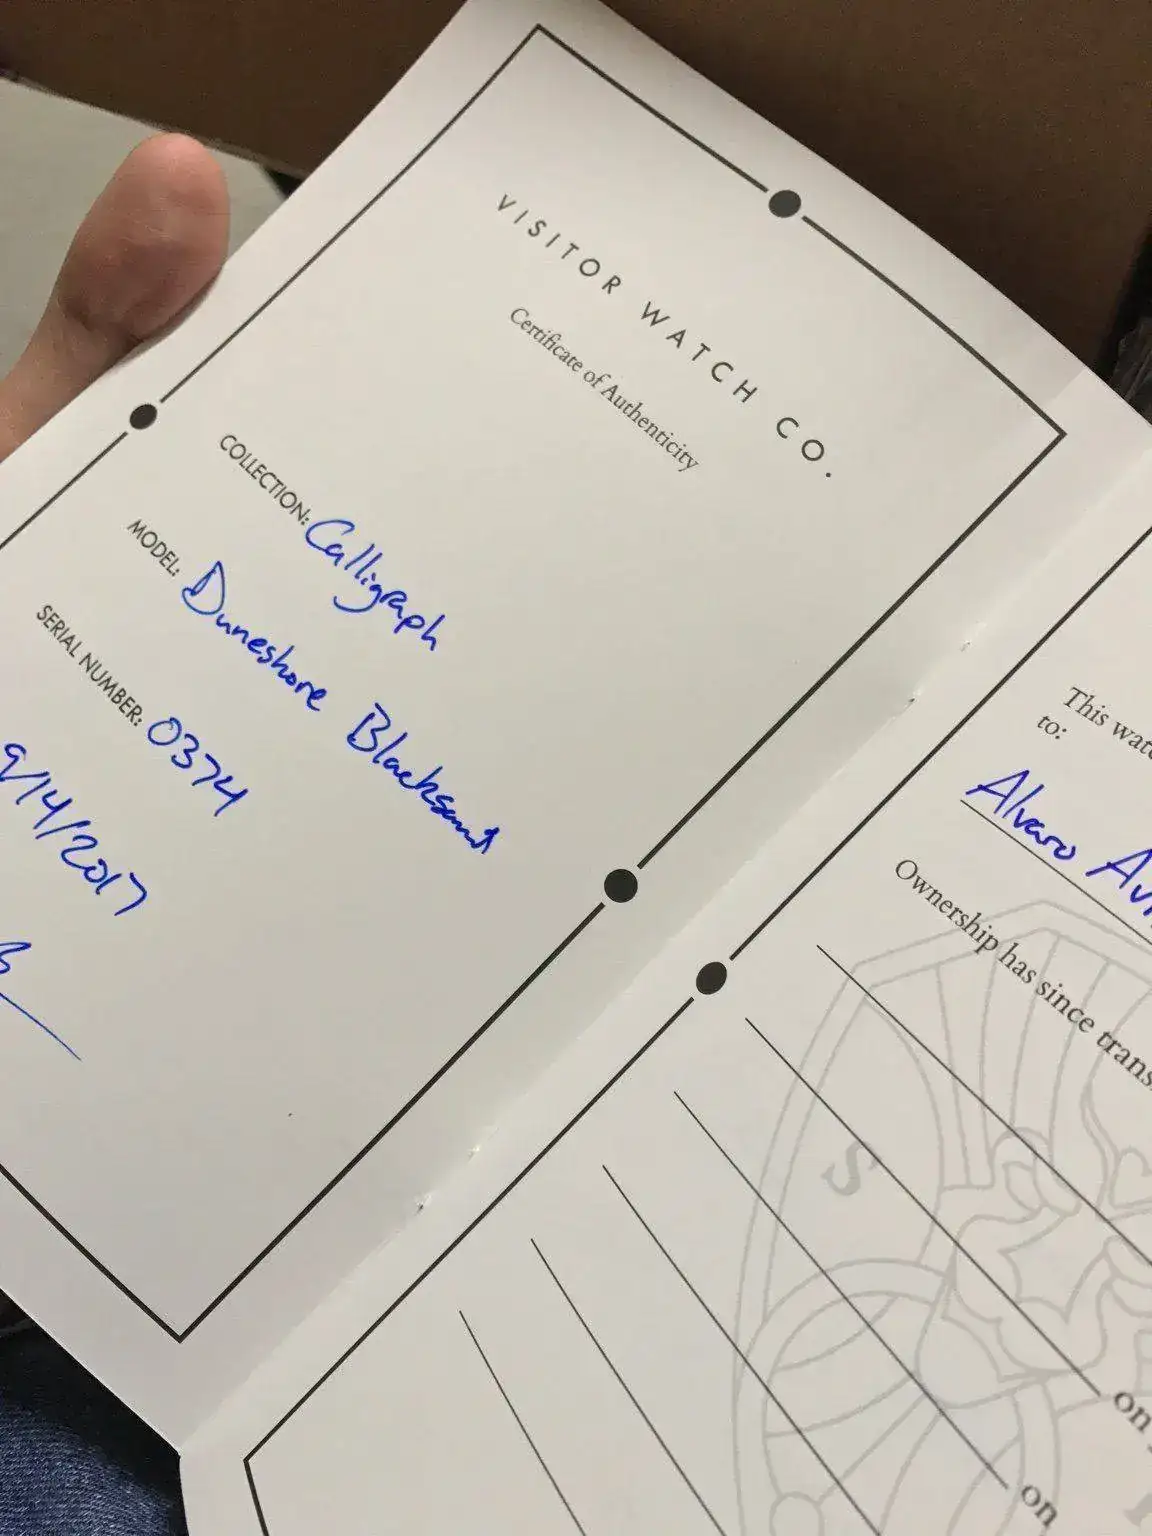 VISITOR WATCH CO.
Certificate of Authenticity
COLLECTION: Calligraph
MODEL: Duneshore Blacksand
SERIAL NUMBER: 0374
9/14/2017
This
to:
Alvaro
Ownership has since
on
on
S